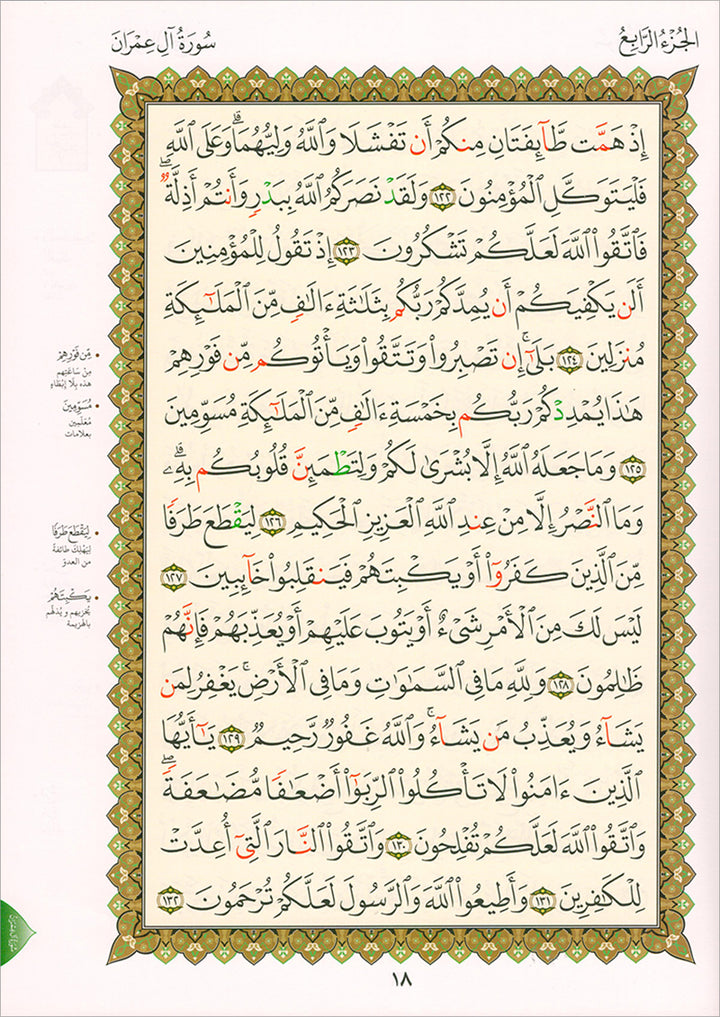 الجُزْءُ الرَّابِعُ
سُورَةُ آلِ عِمْرَانَ
إِذْ هَمَّت طَّآئِفَتَانِ مِنكُمْ أَن تَفْشَلَا وَٱللَّهُ وَلِيُّهُمَا ۗ وَعَلَى ٱللَّهِ
فَلْيَتَوَكَّلِ ٱلْمُؤْمِنُونَ ١٢٢ وَلَقَدْ نَصَرَكُمُ ٱللَّهُ بِبَدْرٍ وَأَنتُمْ أَذِلَّةٌ ۖ
فَٱتَّقُوا۟ ٱللَّهَ لَعَلَّكُمْ تَشْكُرُونَ ١٢٣ إِذْ تَقُولُ لِلْمُؤْمِنِينَ
أَلَن يَكْفِيَكُمْ أَن يُمِدَّكُمْ رَبُّكُم بِثَلَٰثَةِ ءَالَٰفٍ مِّنَ ٱلْمَلَٰٓئِكَةِ
مُنزَلِينَ ١٢٤ بَلَىٰٓ ۚ إِن تَصْبِرُوا۟ وَتَتَّقُوا۟ وَيَأْتُوكُم مِّن فَوْرِهِمْ
هَٰذَا يُمْدِدْكُمْ رَبُّكُم بِخَمْسَةِ ءَالَٰفٍ مِّنَ ٱلْمَلَٰٓئِكَةِ مُسَوِّمِينَ
١٢٥ وَمَا جَعَلَهُ ٱللَّهُ إِلَّا بُشْرَىٰ لَكُمْ وَلِتَطْمَئِنَّ قُلُوبُكُم بِهِۦ ۗ
وَمَا ٱلنَّصْرُ إِلَّا مِنْ عِندِ ٱللَّهِ ٱلْعَزِيزِ ٱلْحَكِيمِ ١٢٦ لِيَقْطَعَ طَرَفًا
مِّنَ ٱلَّذِينَ كَفَرُوٓا۟ أَوْ يَكْبِتَهُمْ فَيَنقَلِبُوا۟ خَآئِبِينَ ١٢٧
لَيْسَ لَكَ مِنَ ٱلْأَمْرِ شَىْءٌ أَوْ يَتُوبَ عَلَيْهِمْ أَوْ يُعَذِّبَهُمْ فَإِنَّهُمْ
ظَٰلِمُونَ ١٢٨ وَلِلَّهِ مَا فِى ٱلسَّمَٰوَٰتِ وَمَا فِى ٱلْأَرْضِ ۚ يَغْفِرُ لِمَن
يَشَآءُ وَيُعَذِّبُ مَن يَشَآءُ ۚ وَٱللَّهُ غَفُورٌ رَّحِيمٌ ١٢٩ يَٰٓأَيُّهَا
ٱلَّذِينَ ءَامَنُوا۟ لَا تَأْكُلُوا۟ ٱلرِّبَوٰٓا۟ أَضْعَٰفًا مُّضَٰعَفَةً ۖ
وَٱتَّقُوا۟ ٱللَّهَ لَعَلَّكُمْ تُفْلِحُونَ ١٣٠ وَٱتَّقُوا۟ ٱلنَّارَ ٱلَّتِىٓ أُعِدَّتْ
لِلْكَٰفِرِينَ ١٣١ وَأَطِيعُوا۟ ٱللَّهَ وَٱلرَّسُولَ لَعَلَّكُمْ تُرْحَمُونَ ١٣٢
• مِّن فَوْرِهِمْ
مِنْ سَاعَتِهم
هذه بِلَا إبْطَاءٍ
• مُسَوِّمِينَ
مُعَلِّمِين
بعلامات
• لِيَقْطَعَ طَرَفًا
لِيُهْلِكَ طائفةً
من العدوّ
• يَكْبِتَهُمْ
يُخْزِيهم و يُذلّهم
بالهزيمة
١٨